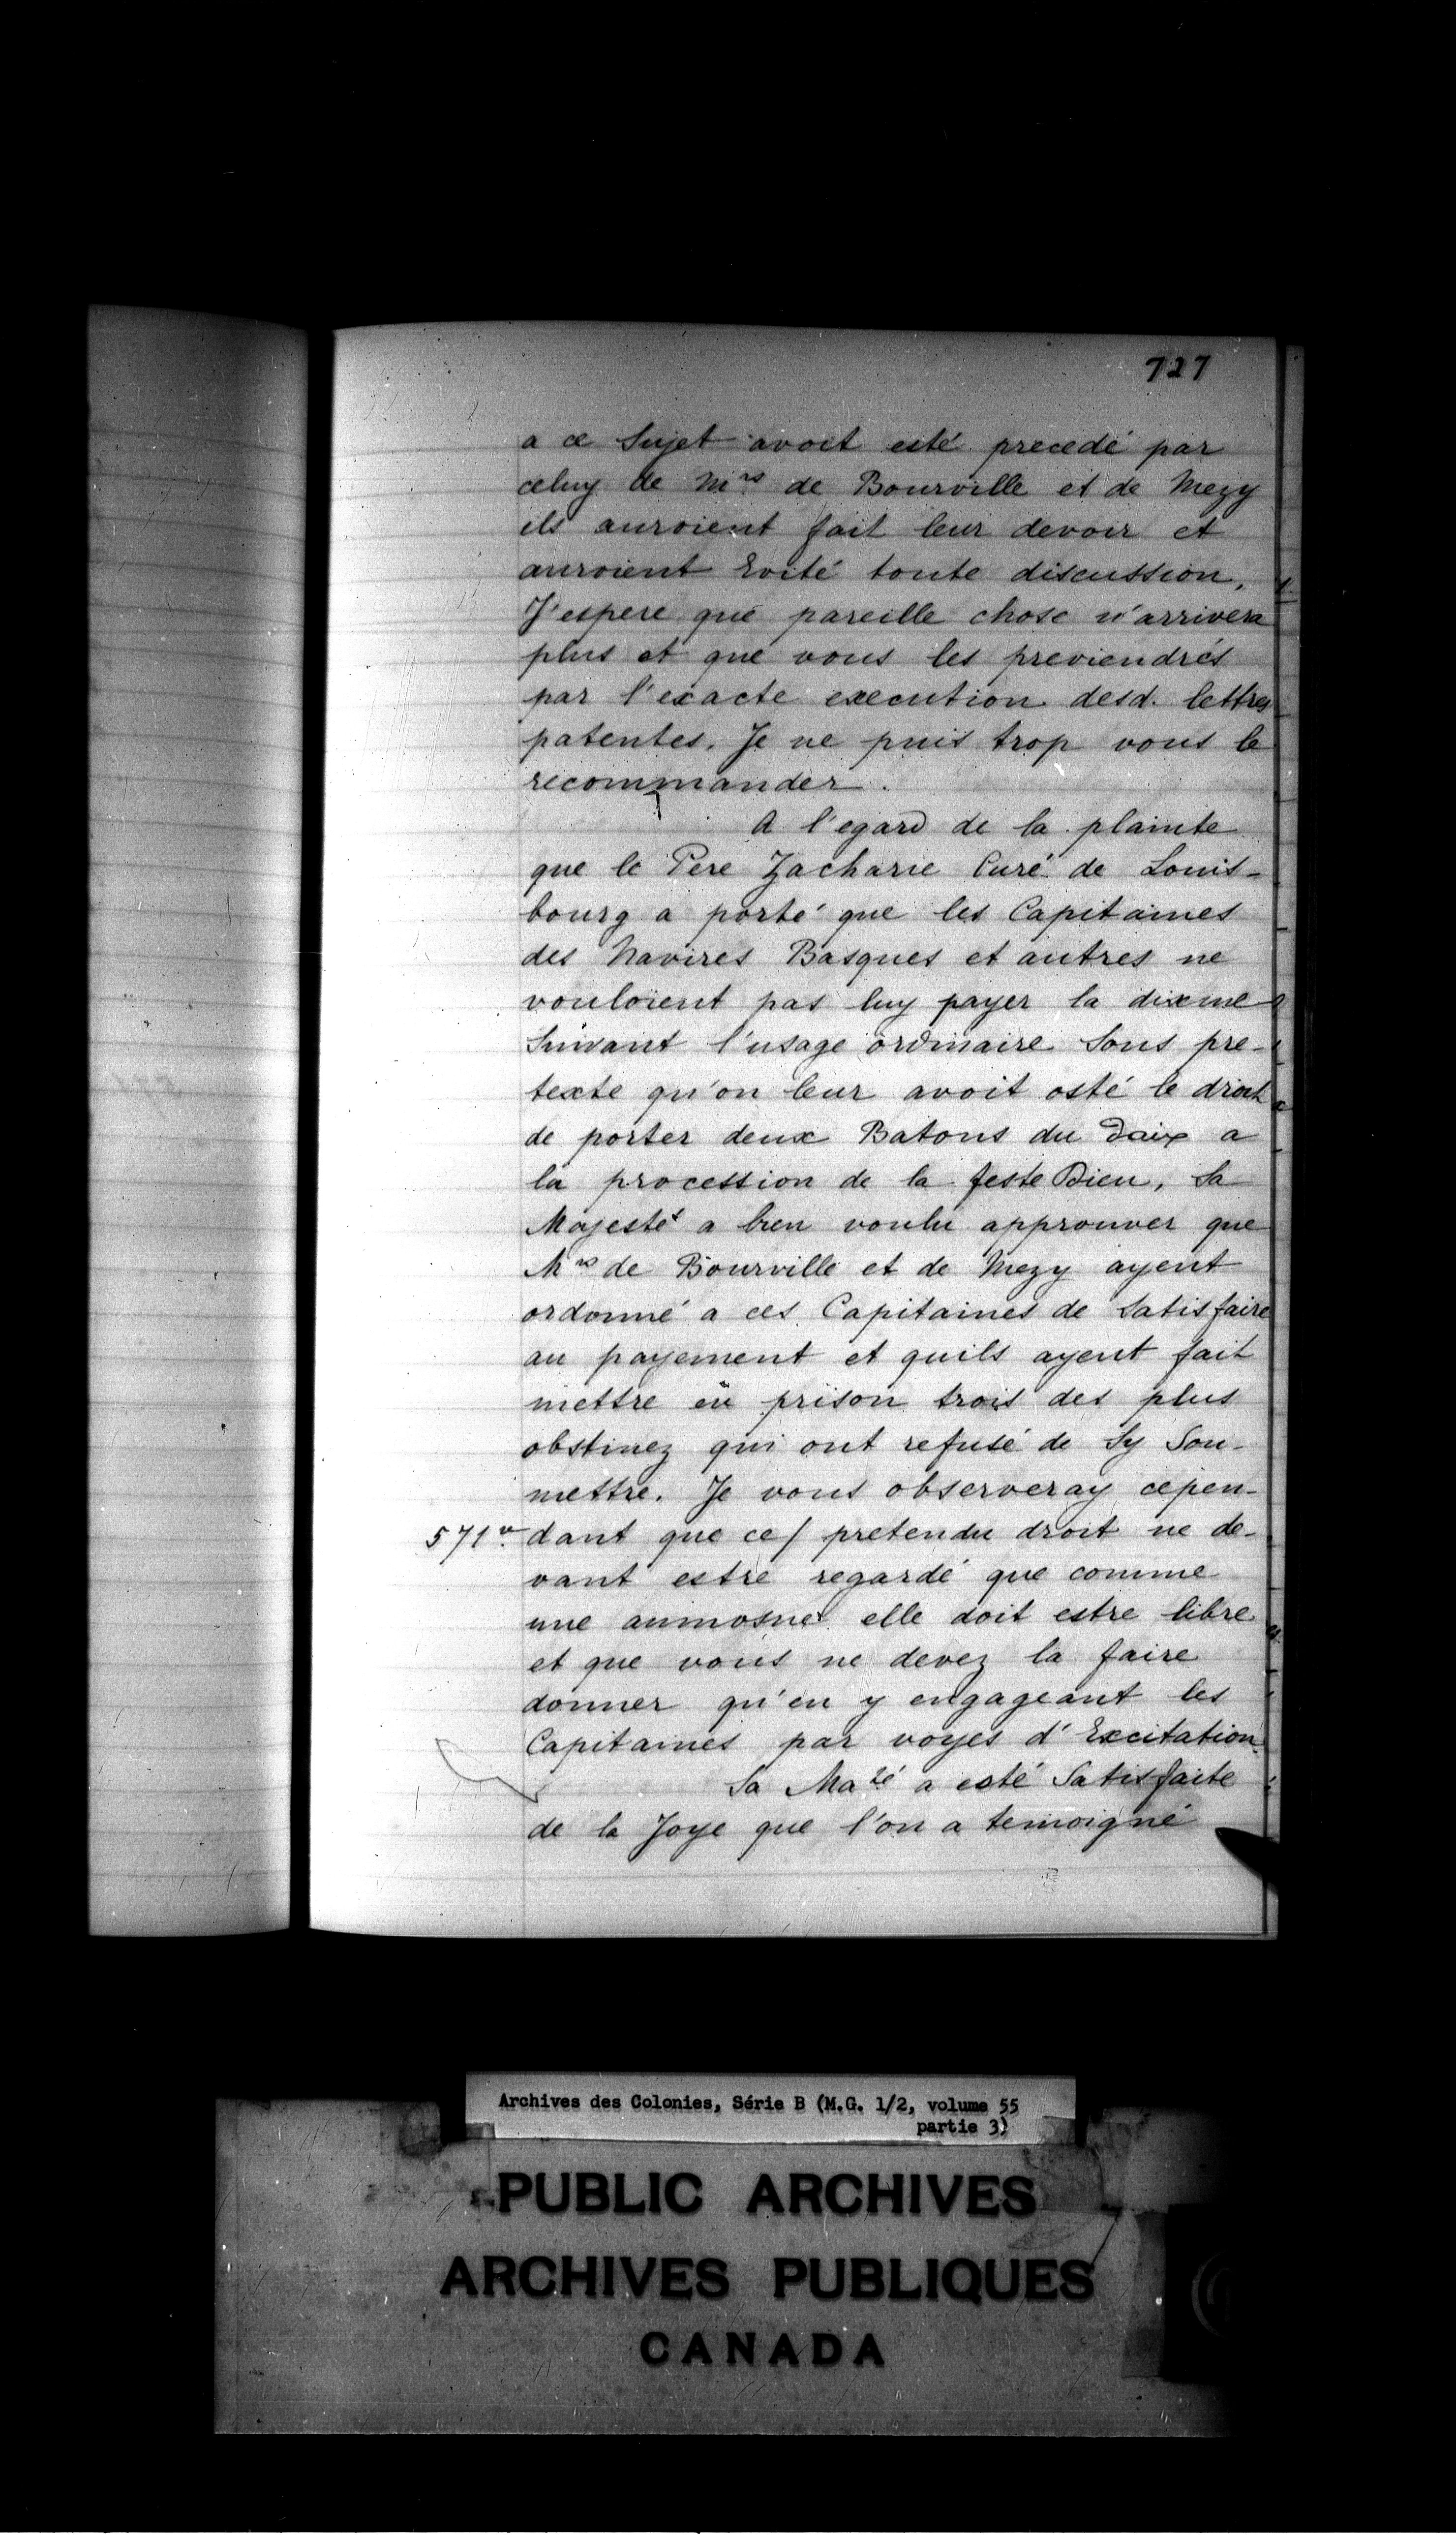 727
a ce Sujet avoit esté precedé par
celuy de Mrs de Bourville et de Mezy
ils auroient fait leur devoir et
auroient Evité toute discussion,
J'espere que pareille chose n'arrivera
plus et que vous les previendrés
par l'exacte execution desd. lettres
patentes. Je ne puis trop vous le
recommander.
A l'egard de la plainte
que le Pere Zacharie Curé de Louis-
bourg a porté que les Capitaines
des Navires Basques et autres ne
vouloient pas luy payer la dixme
Suivant l'usage ordinaire Sous pre-
texte qu'on leur avoit osté le droit
de porter deux Batons du Daix a
la procession de la feste Dieu, Sa
Majesté a bien voulu approuver que
Mrs de Bourville et de Mezy ayent
ordonné a ces Capitaines de Satisfaire
au payement et quils ayent fait
mettre en prison trois des plus
obstinez qui ont refusé de Sy Sou-
mettre. Je vous observeray cepen-
571v. dant que ce/ pretendu droit ne de-
vant estre regardé que comme
une aumosne elle doit estre libre
et que vous ne devez la faire
donner qu'en y engageant les
Capitaines par voyes d'Excitation.
Sa Maté a esté Satisfaite
de la Joye que l'on a temoigné
Archives des Colonies, Série B (M.G. 1/2, volume 55
partie 3)
PUBLIC ARCHIVES
ARCHIVES PUBLIQUES
CANADA